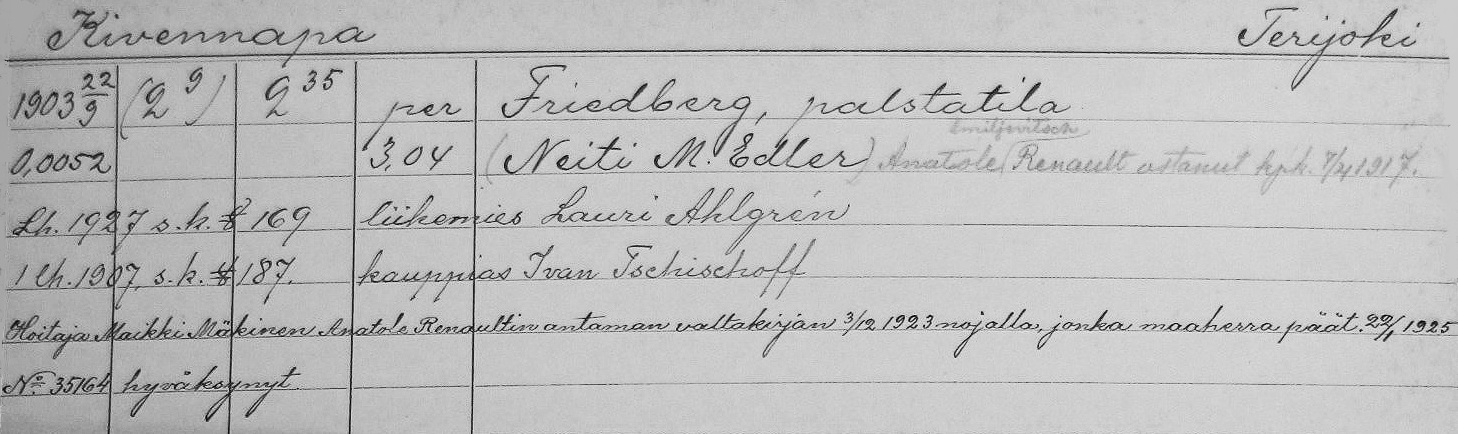 Kivennapa Terijoki
1903 22/9 (2⁹) 2³⁵ per Friedberg, palstatila
Emiljevitsch
0,0052 3,04 (Neiti M. Edler) Anatole Renault ostanut kpk. 7/4 1917.
Lh. 1927 s.k. § 169 liikemies Lauri Ahlgrén
1 lh. 1907, s.k. § 187. kauppias Ivan Tschischoff
Hoitaja Maikki Mäkinen Anatole Renaultin antaman valtakirjan 3/12 1923 nojalla, jonka maaherra päät. 22/1 1925
No 35164 hyväksynyt.